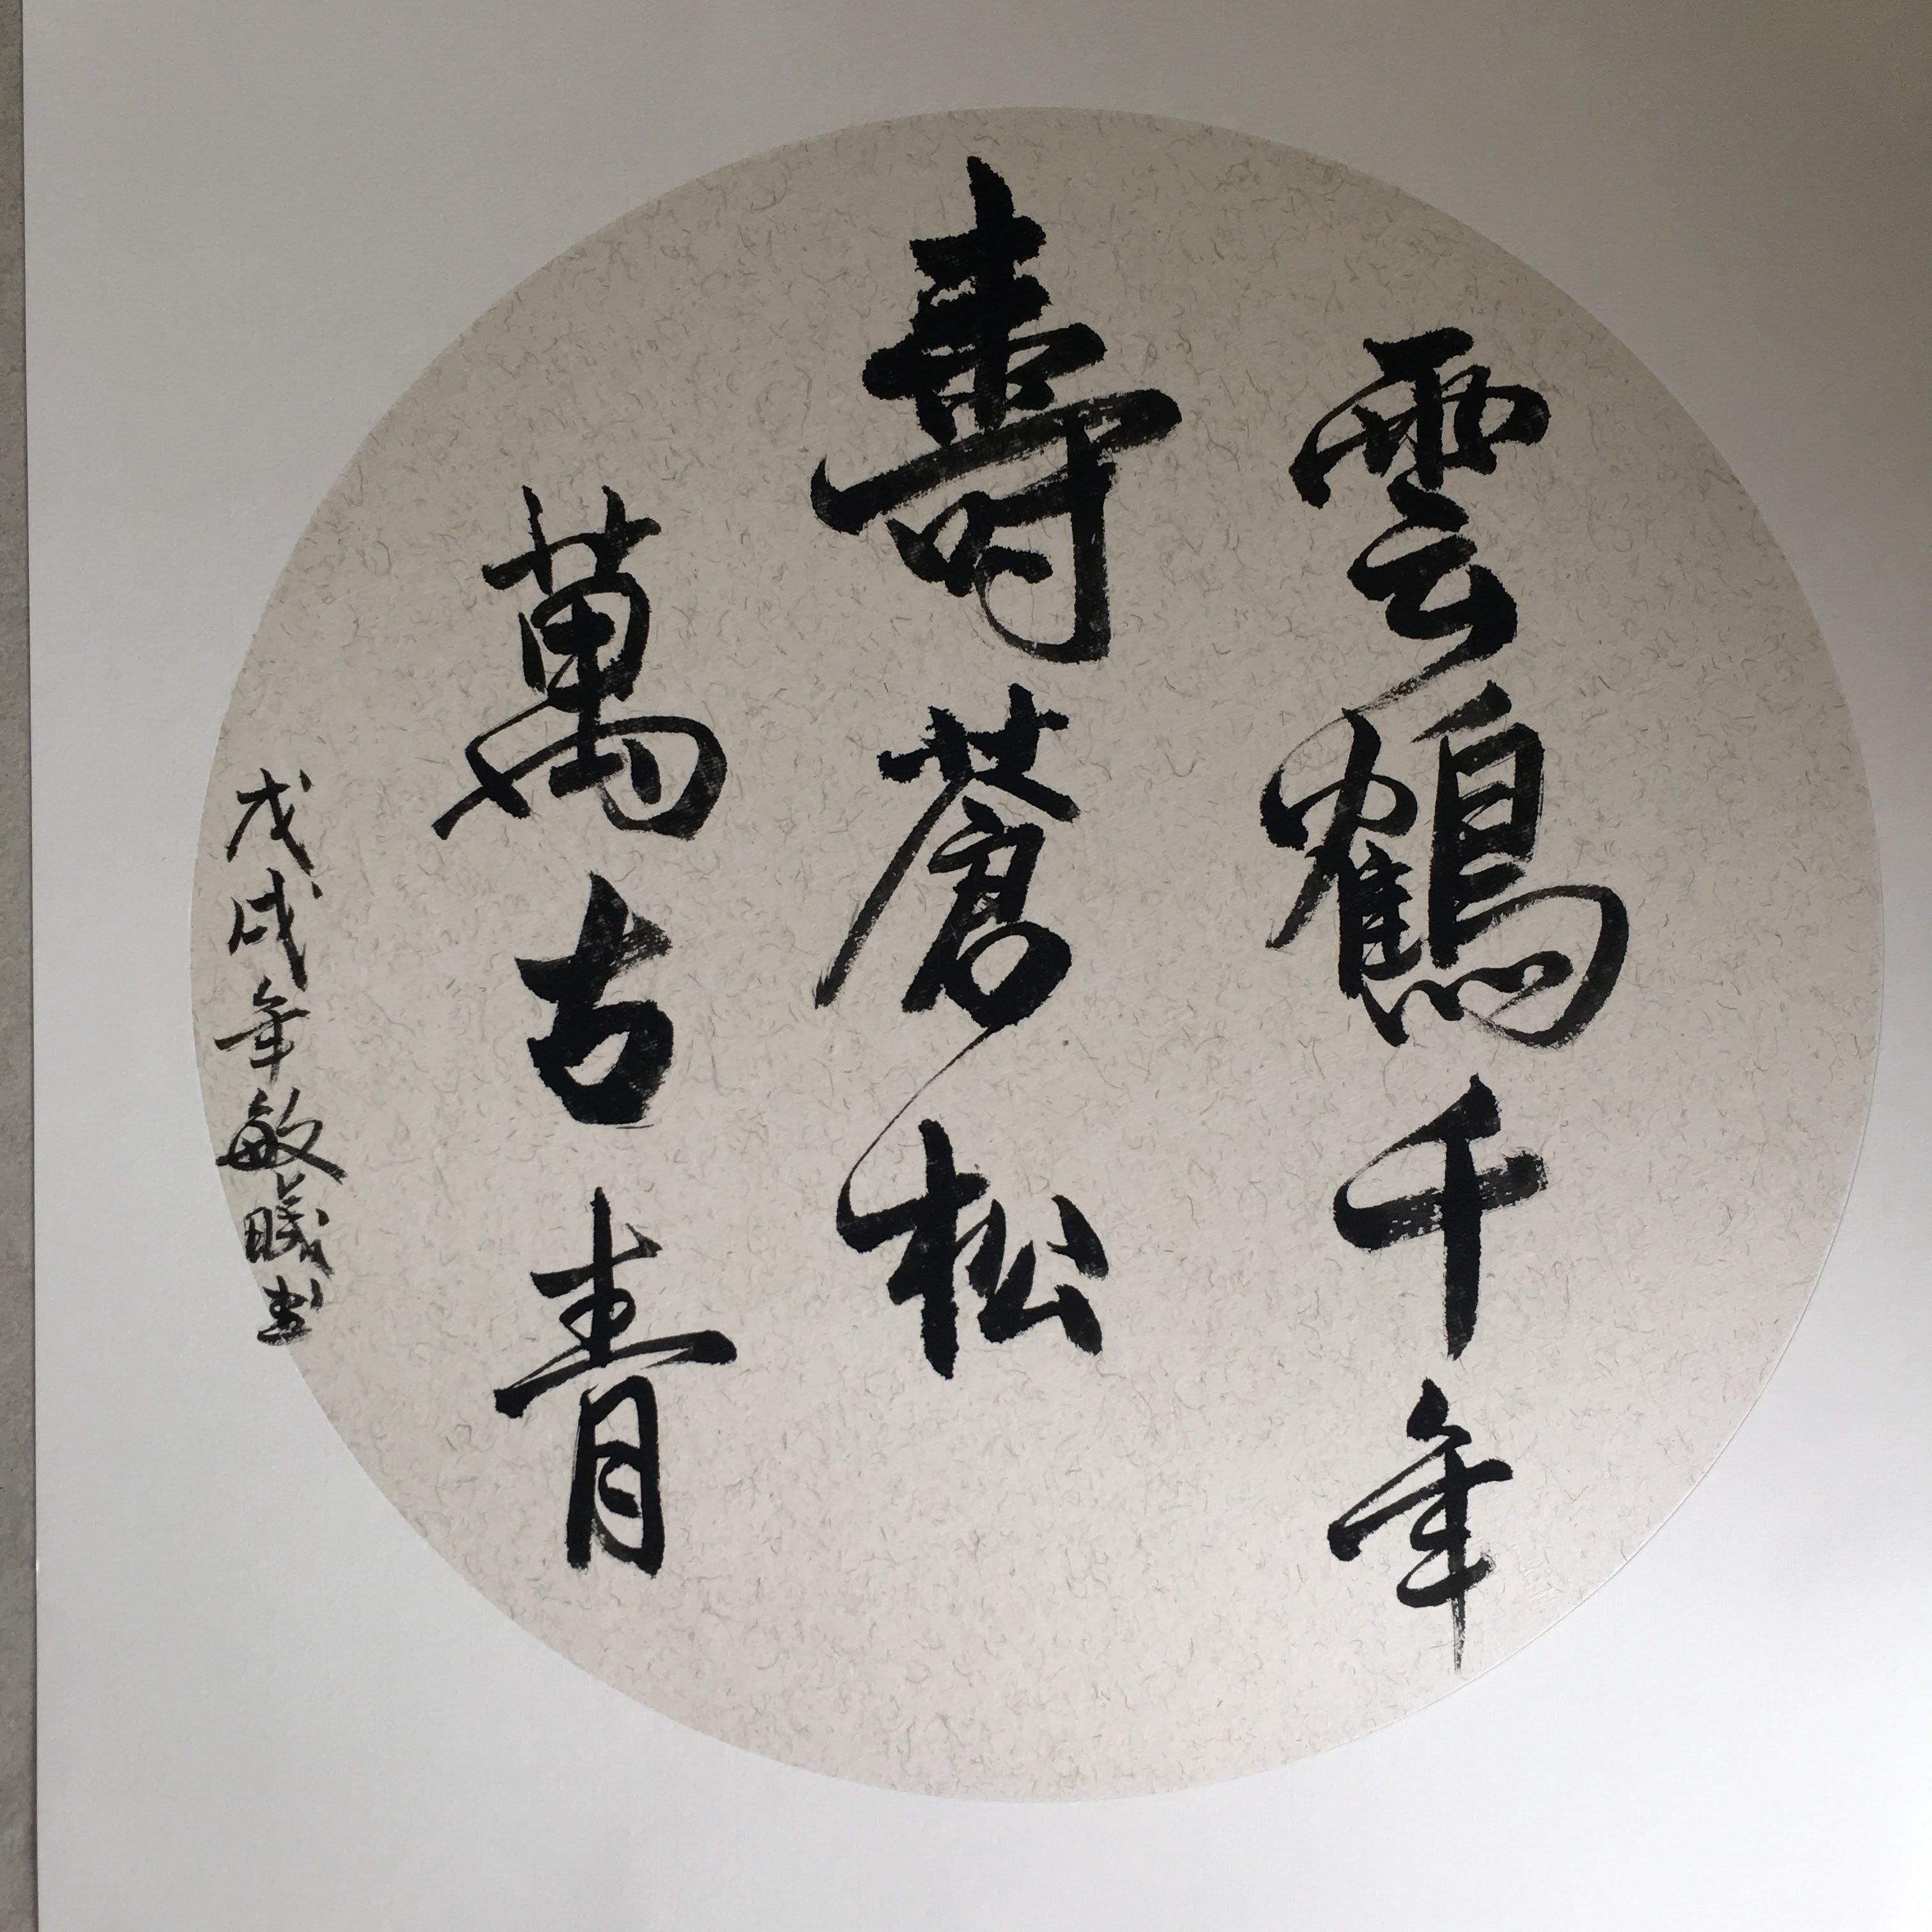 雲鶴千年
壽蒼松
萬古青
戊戌年敏曦书